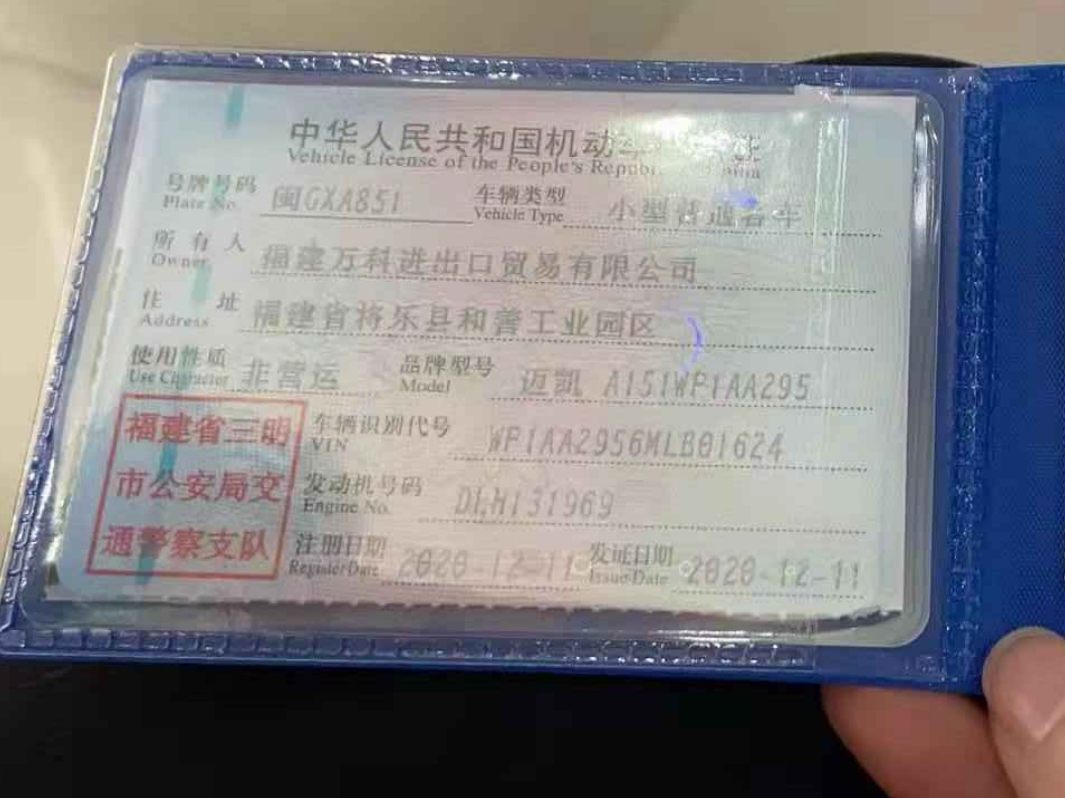 中华人民共和国机动
Vehicle License of the People's Republic of China
号牌号码 闽GXA851 车辆类型 小型普通客车
Plate No. Vehicle Type
所有人 福建万科进出口贸易有限公司
Owner
住址 福建省将乐县和善工业园区
Address
使用性质 非营运 品牌型号 迈凯 A151WP1AA295
Use Character Model
福建省三明 车辆识别代号 WP1AA2956MLB01624
VIN
市公安局交 发动机号码 DLH131969
Engine No.
通警察支队 注册日期 2020-12-11 发证日期 2020-12-11
Register Date Issue Date